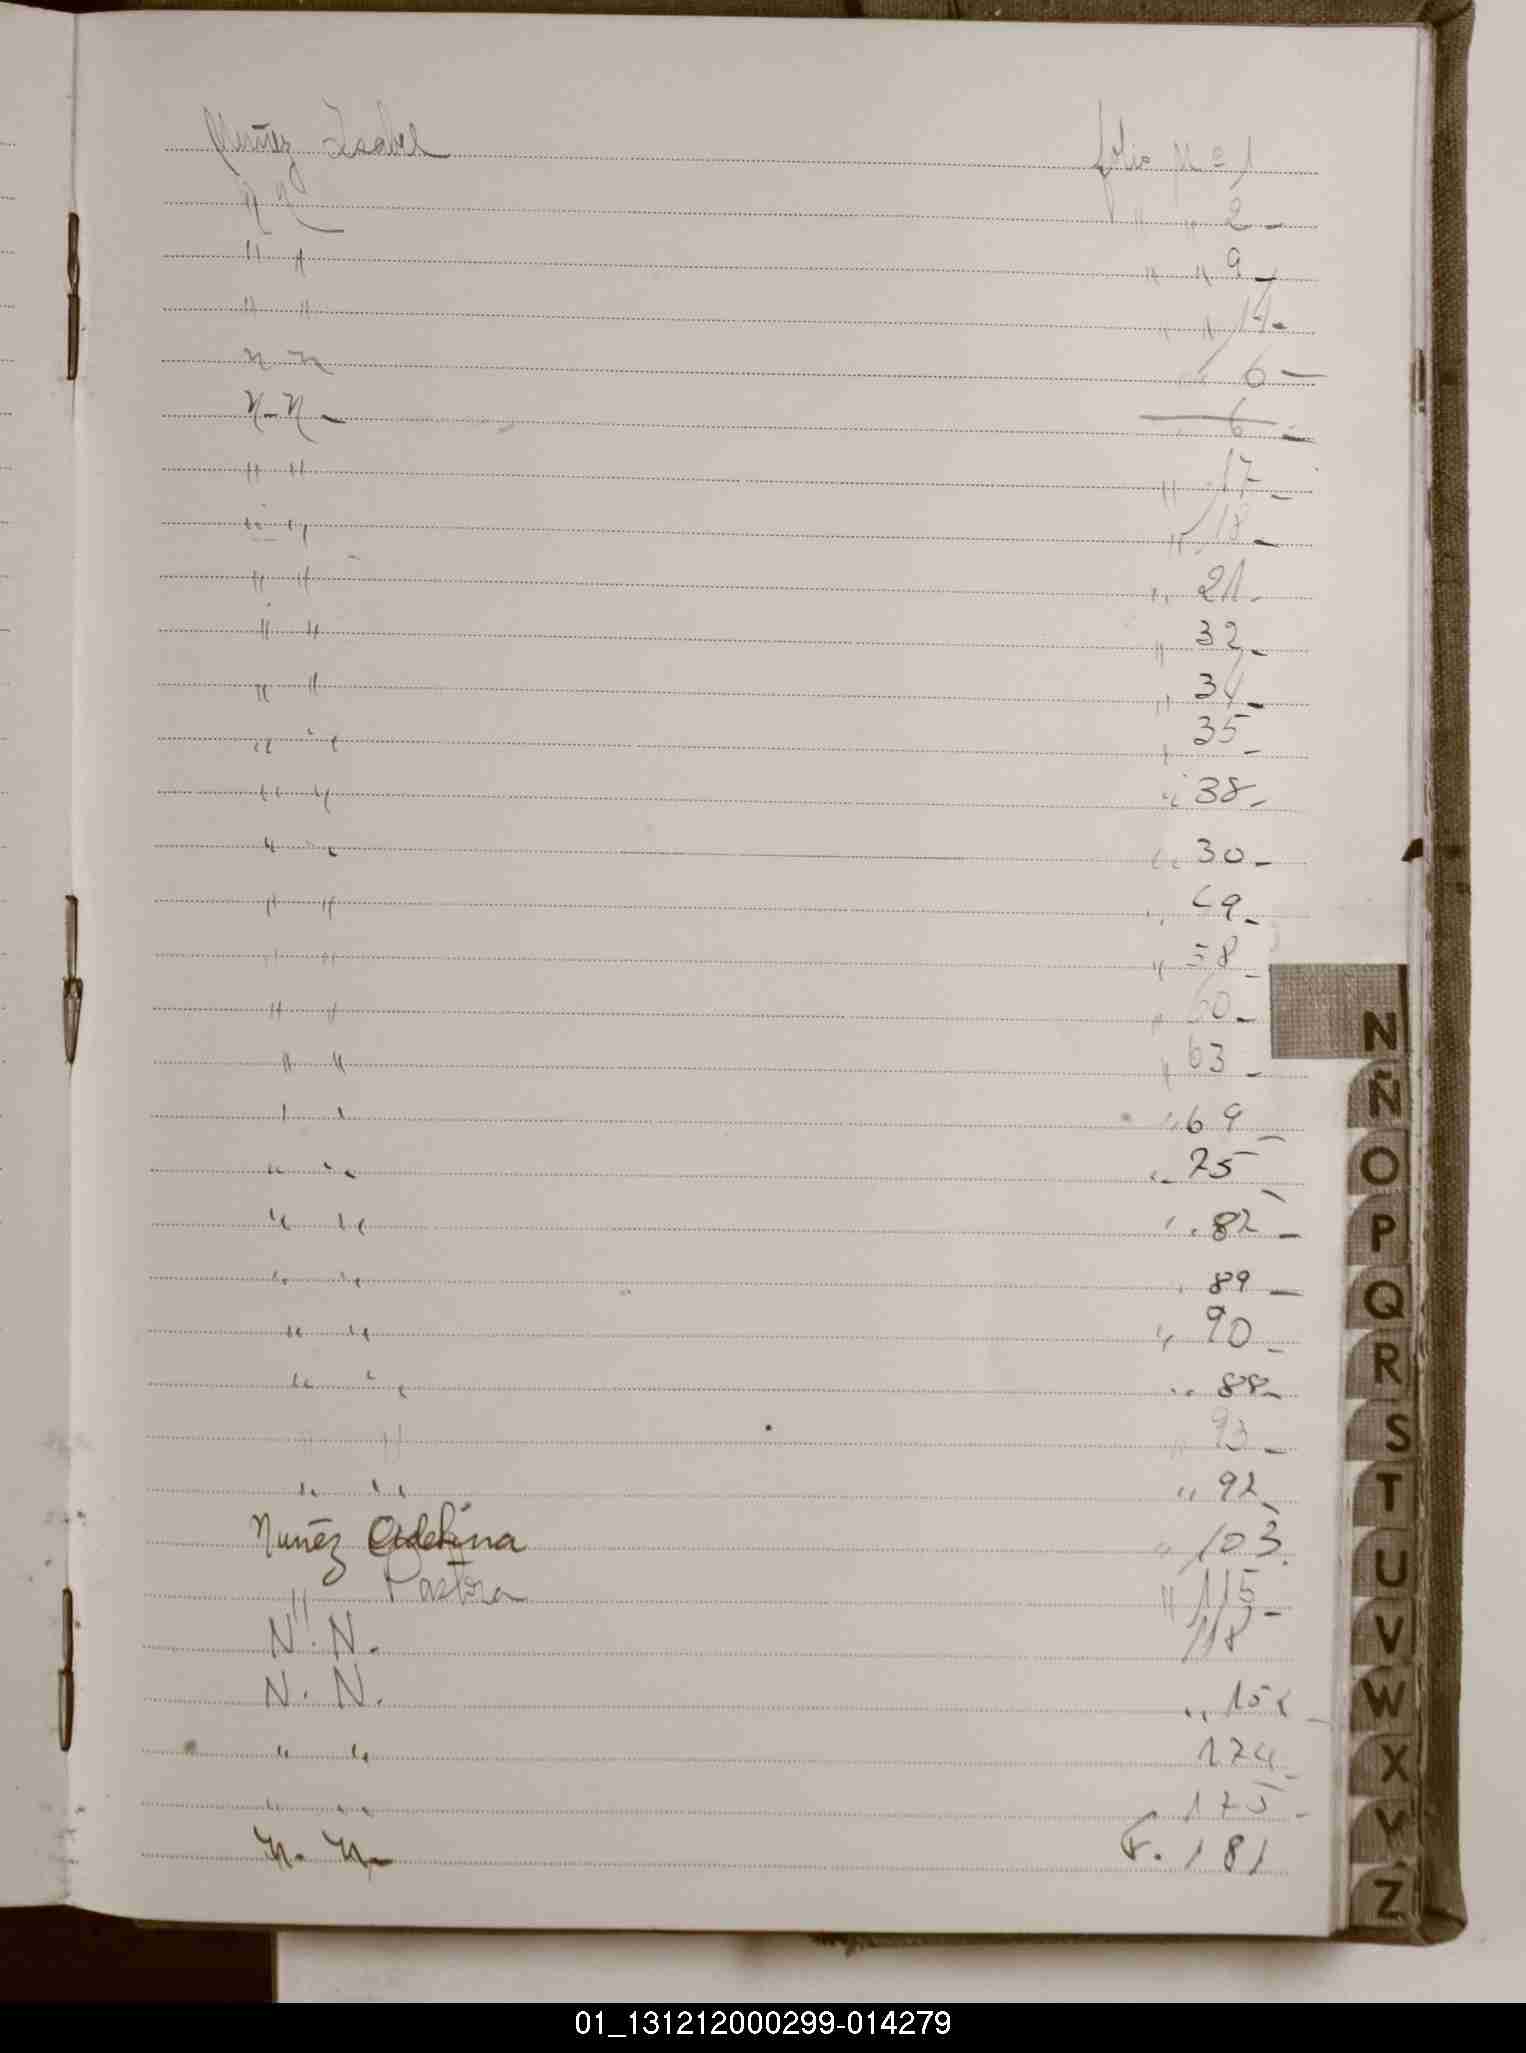 Nuñez Isabel folio Nº 1
N N " " 2 -
" " " " 9 -
" " " " 14 -
N N " 6 -
N - N - " 6 -
" " " 17 -
" " " 18 -
" " " 21 -
" " " 32 -
" " " 34 -
" " " 35 -
" " " 38 -
" " " 30 -
" " " 49 -
" " " 58 -
" " " 60 -
" " " 63 -
" " " 69 -
" " " 75 -
" " " 82 -
" " " 89 -
" " " 90 -
" " " 88 -
" " " 93 -
" " " 92 -
Nuñez Adelina " 103.
" Pastora " 115 -
N. N. 118
N. N. "
" " 174 -
" " 175 -
N. N. F. 181
N
Ñ
O
P
Q
R
S
T
U
V
W
X
Y
Z
01_131212000299-014279